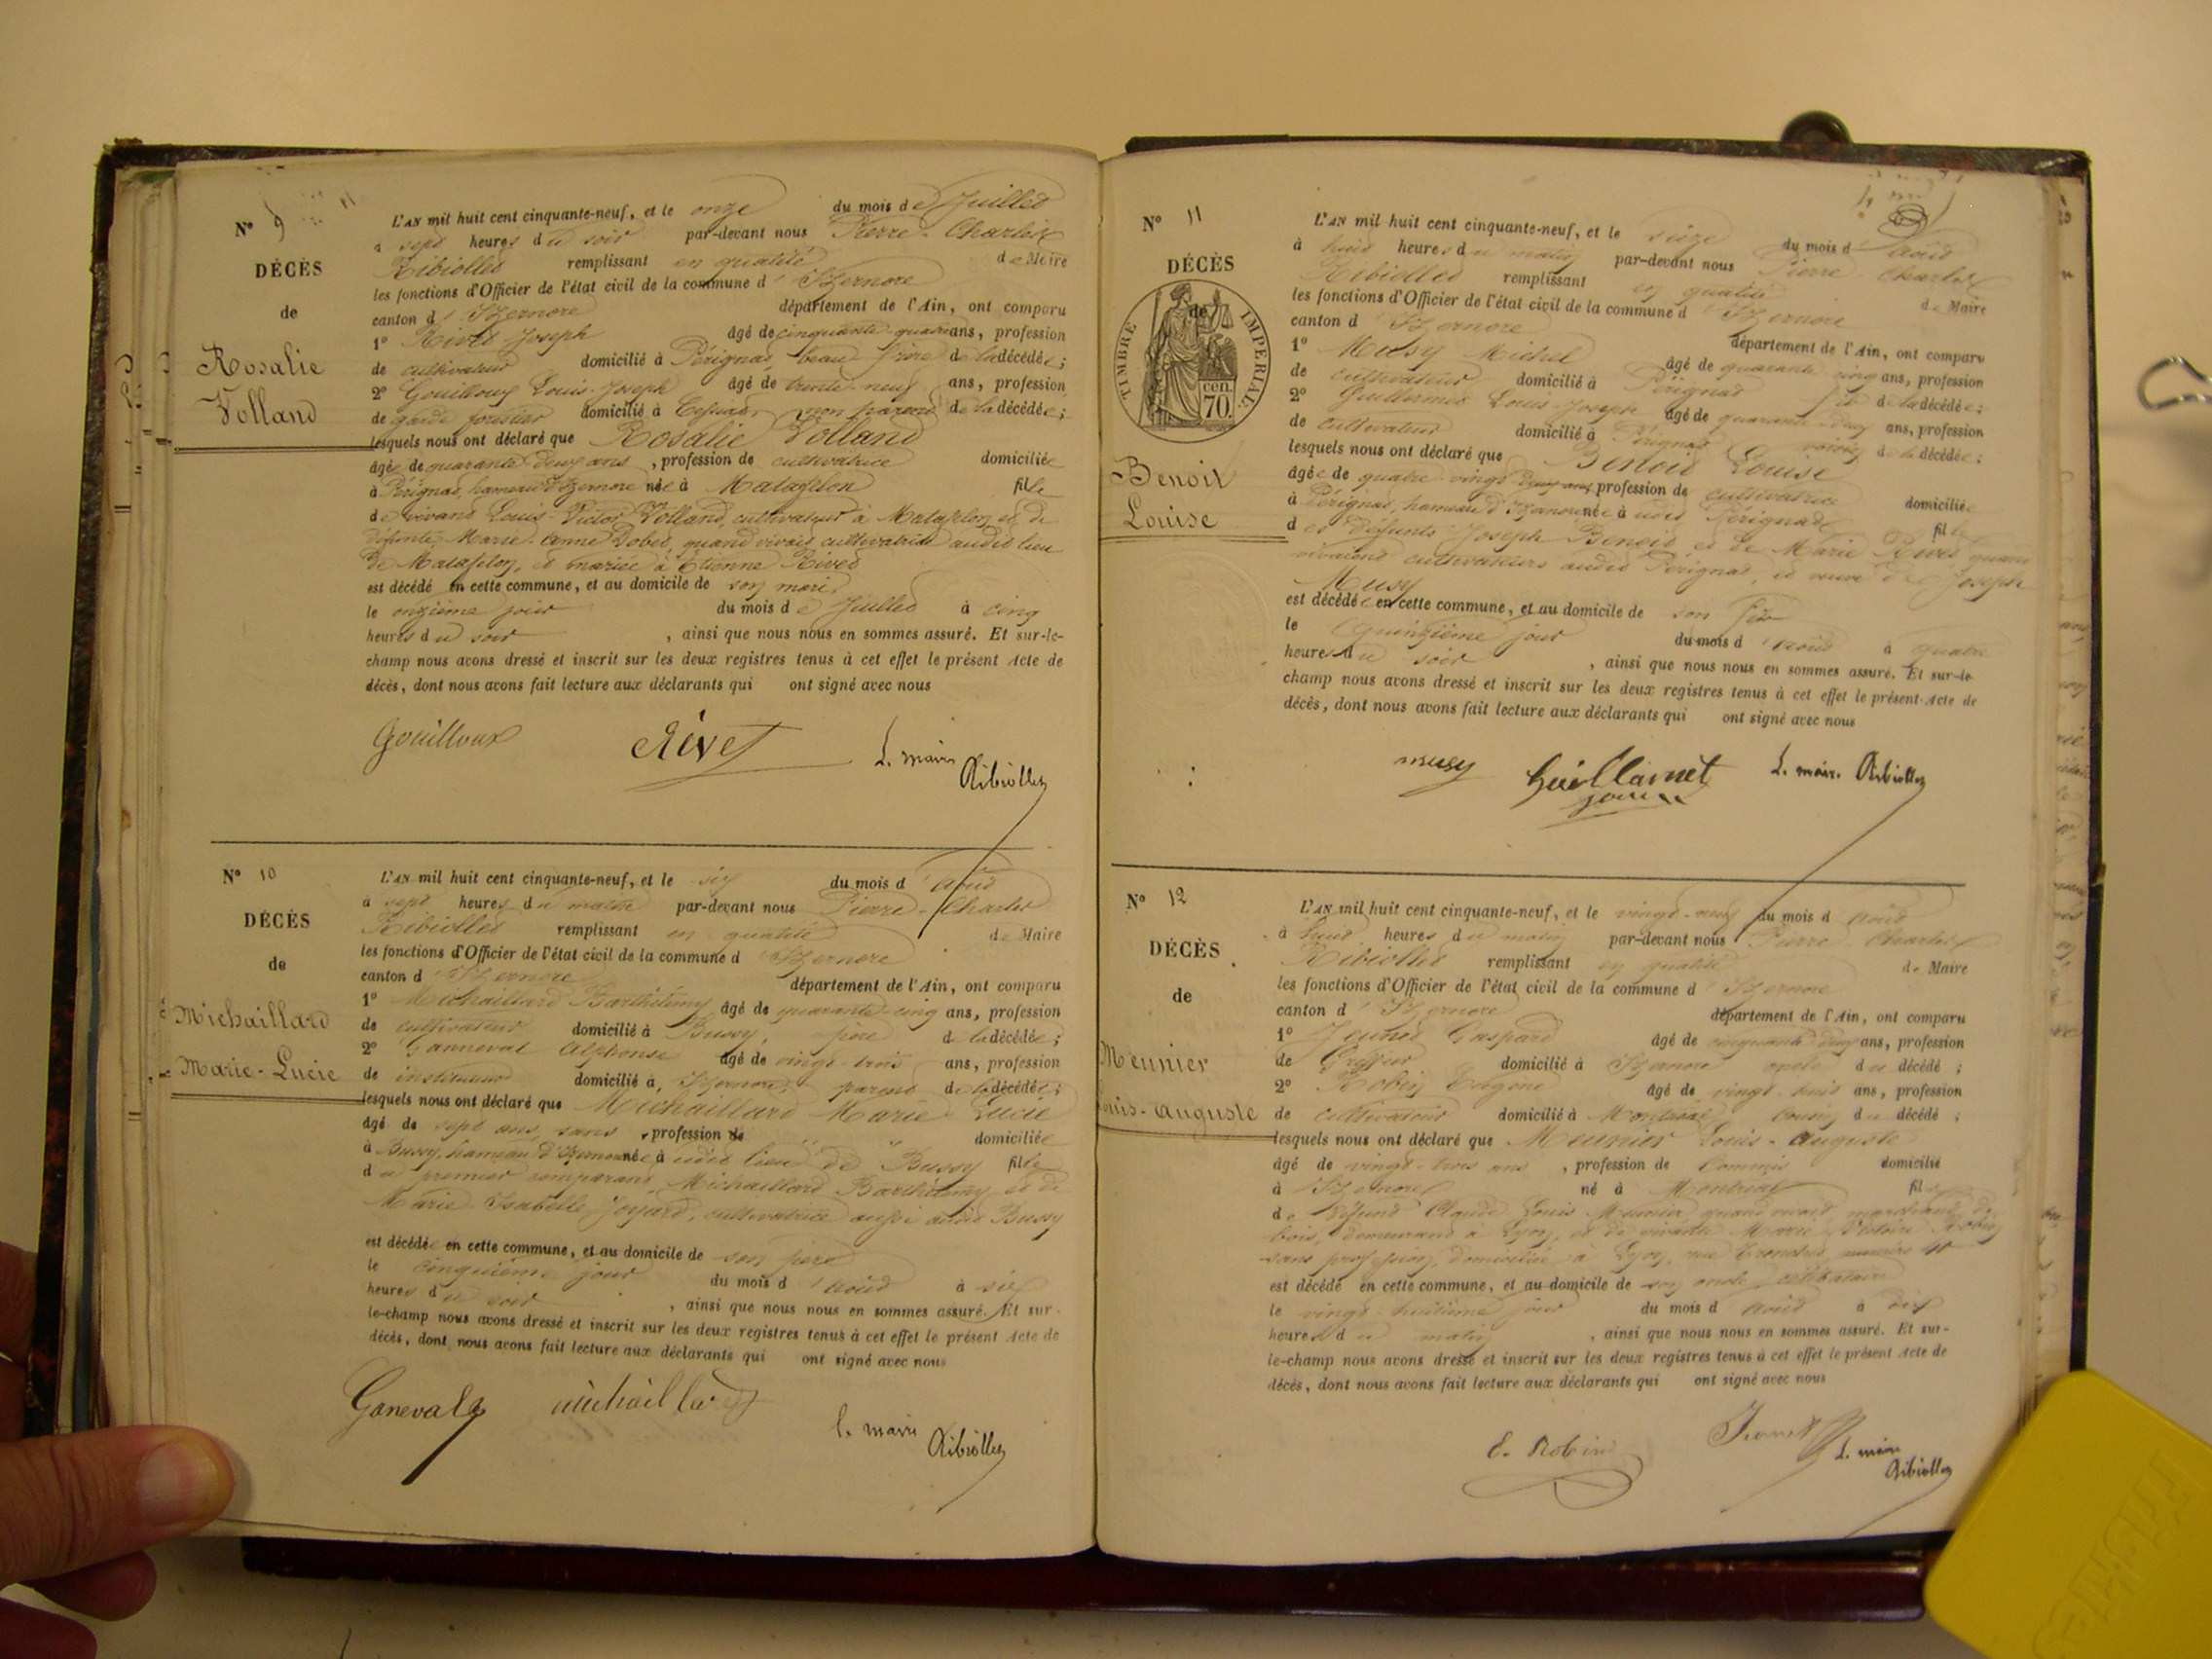 N° 9
DÉCÈS
de
Rosalie
Volland
L'AN mil huit cent cinquante-neuf, et le onze du mois de Juillet
à sept heures du soir par-devant nous Pierre-Charles
Ribiollet remplissant en qualité de Maire
les fonctions d'Officier de l'état civil de la commune d'Izernore
canton d'Izernore département de l'Ain, ont comparu
1° Rivet Joseph âgé de cinquante quatre ans, profession
de cultivateur domicilié à Pérignat, beau frère de la décédée;
2° Gouilloux Louis-Joseph âgé de trente-neuf ans, profession
de garde forestier domicilié à non parent de la décédée;
lesquels nous ont déclaré que Rosalie Volland
âgée de quarante deux ans, profession de cultivatrice domiciliée
à Pérignat, hameau d'Izernore née à Matafelon fille
de vivant Louis-Victor Volland, cultivateur à Matafelon et de
défunte Marie-Anne Dobet, quand vivait cultivatrice audit lieu
de Matafelon, et mariée à Etienne Rivet
est décédé en cette commune, et au domicile de son mari
le onzième jour du mois de Juillet à cinq
heures du soir, ainsi que nous nous en sommes assuré. Et sur-le-
champ nous avons dressé et inscrit sur les deux registres tenus à cet effet le présent Acte de
décès, dont nous avons fait lecture aux déclarants qui ont signé avec nous
Gouilloux Rivet L. maire Ribiollet
N° 10
DÉCÈS
de
Michaillard
Marie-Lucie
L'AN mil huit cent cinquante-neuf, et le six du mois d'août
à sept heures du matin par-devant nous Pierre-Charles
Ribiollet remplissant en qualité de Maire
les fonctions d'Officier de l'état civil de la commune d'Izernore
canton d'Izernore département de l'Ain, ont comparu
1° Michaillard Barthélemy âgé de quarante cinq ans, profession
de cultivateur domicilié à Bussy, père de la décédée;
2° Ganneval Alphonse âgé de vingt-trois ans, profession
de instituteur domicilié à Izernore, parent de la décédée;
lesquels nous ont déclaré que Michaillard Marie Lucie
âgé de sept ans, sans profession de domiciliée
à Bussy, hameau d'Izernore née à udit lieu de Bussy fille
du premier comparant Michaillard Barthélemy et de
Marie Isabelle Joyard, cultivatrice aussi audit Bussy
est décédée en cette commune, et au domicile de son père
le cinquième jour du mois d'août à six
heures du soir, ainsi que nous nous en sommes assuré. Et sur-
le-champ nous avons dressé et inscrit sur les deux registres tenus à cet effet le présent Acte de
décès, dont nous avons fait lecture aux déclarants qui ont signé avec nous
Ganeval michaillard l. maire Ribiollet
N° 11
DÉCÈS
de
TIMBRE IMPERIAL
70 cen.
Benoit
Louise
L'AN mil huit cent cinquante-neuf, et le seize du mois d'août
à huit heures du matin par-devant nous Pierre Charles
Ribiollet remplissant en qualité de Maire
les fonctions d'Officier de l'état civil de la commune d'Izernore
canton d'Izernore département de l'Ain, ont comparu
1° Musy Michel âgé de quarante cinq ans, profession
de cultivateur domicilié à Pérignat fils de la décédée;
2° Guillermet Louis-Joseph âgé de quarante deux ans, profession
de cultivateur domicilié à Pérignat voisin de la décédée;
lesquels nous ont déclaré que Benoit Louise
âgée de quatre-vingt deux ans, profession de cultivatrice domiciliée
à Pérignat, hameau d'Izernore née à udit Pérignat fille
des défunts Joseph Benoit et de Marie Rivet quand
vivaient cultivateurs audit Pérignat, et veuve de Joseph
Musy
est décédée en cette commune, et au domicile de son fils
le quinzième jour du mois d'août à quatre
heures du soir, ainsi que nous nous en sommes assuré. Et sur-le-
champ nous avons dressé et inscrit sur les deux registres tenus à cet effet le présent Acte de
décès, dont nous avons fait lecture aux déclarants qui ont signé avec nous
musy Guillamet L. maire Ribiollet
N° 12
DÉCÈS
de
Meunier
Louis-auguste
L'AN mil huit cent cinquante-neuf, et le vingt-neuf du mois d'août
à huit heures du matin par-devant nous Pierre Charles
Ribiollet remplissant en qualité de Maire
les fonctions d'Officier de l'état civil de la commune d'Izernore
canton d'Izernore département de l'Ain, ont comparu
1° Jeunet Gaspard âgé de cinquante deux ans, profession
de Greffier domicilié à Izernore oncle du décédé;
2° Robin Eugène âgé de vingt-huit ans, profession
de cultivateur domicilié à Montréal cousin du décédé;
lesquels nous ont déclaré que Meunier Louis-auguste
âgé de vingt-trois ans, profession de Commis domicilié
à Izernore né à Montréal fils
de défunt Claude Louis Meunier quand vivait marchand de
bois, demeurant à Lyon, et de vivante Marie Robin
sans profession, domiciliée à Lyon, rue numéro
est décédé en cette commune, et au domicile de son oncle, célibataire
le vingt-huitième jour du mois d'août à dix
heures du matin, ainsi que nous nous en sommes assuré. Et sur-
le-champ nous avons dressé et inscrit sur les deux registres tenus à cet effet le présent Acte de
décès, dont nous avons fait lecture aux déclarants qui ont signé avec nous
E. Robin Jeunet L. maire Ribiollet